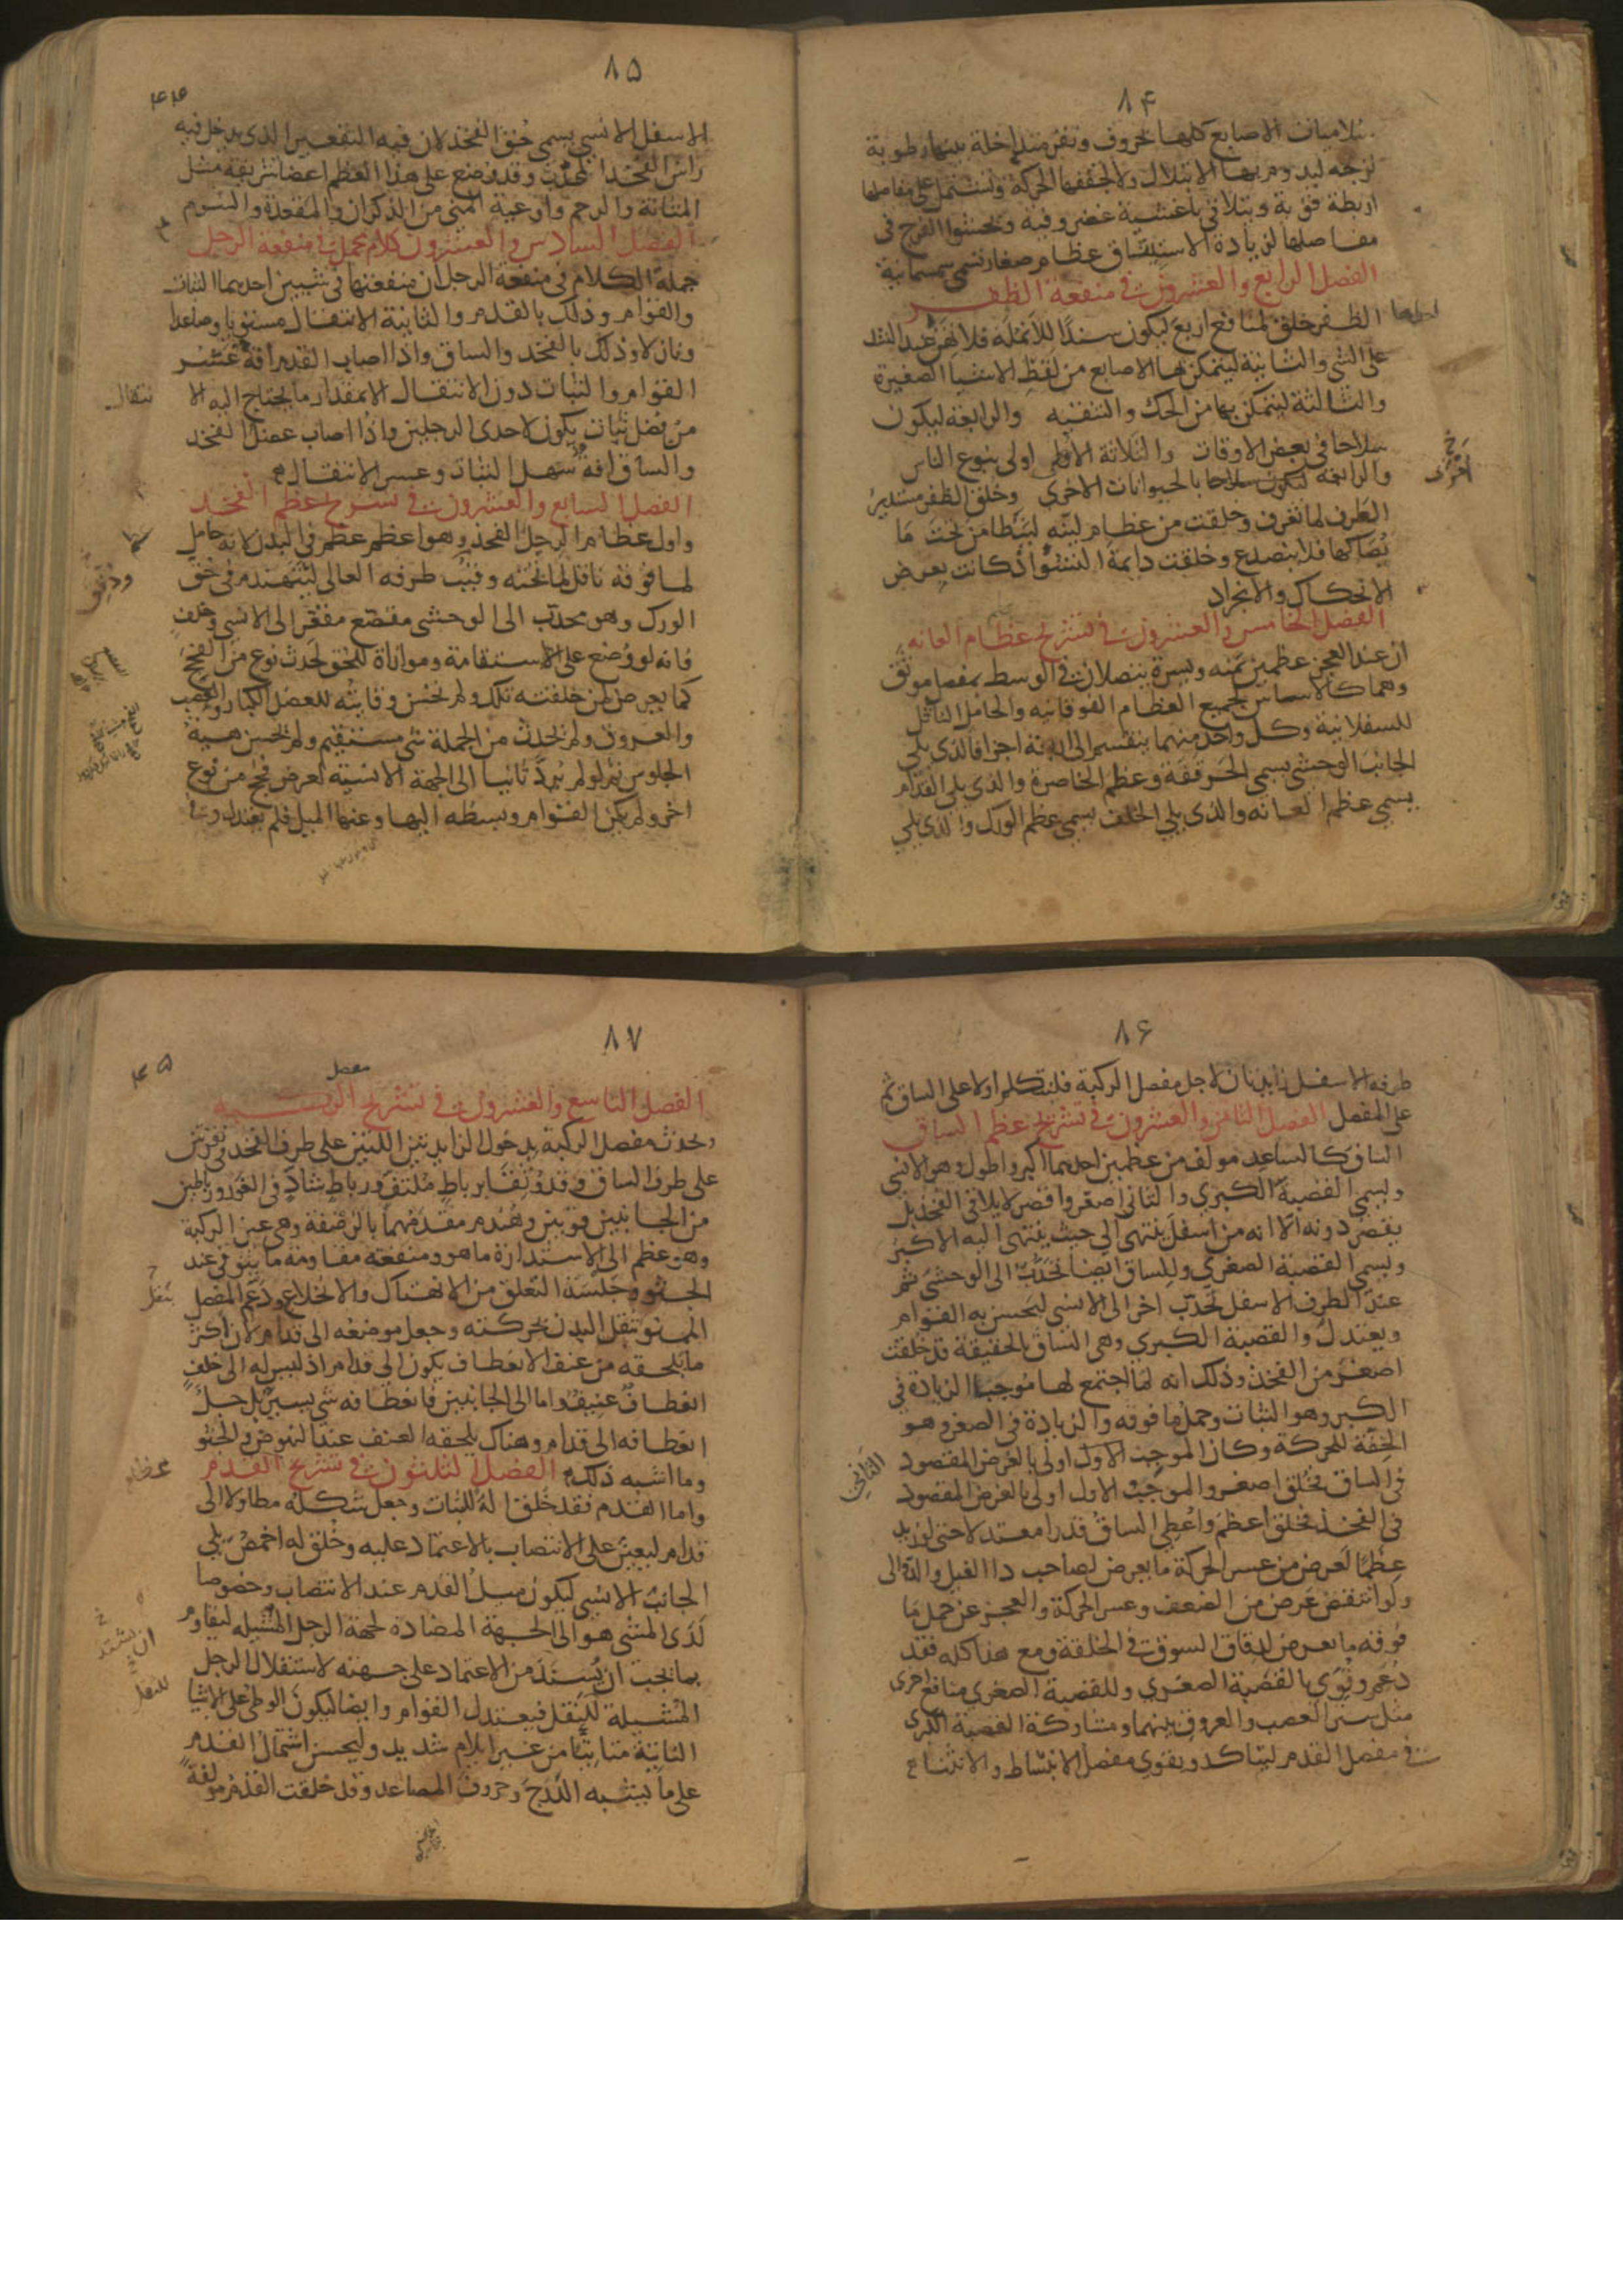 ۸۴
سلاميات الاصابع كلها بحروف ونقر متداخلة بينها رطوبة
لزجه ليدوم بها الابتلال ولا تجففها الحركة وتشتمل على مفاصلها
اربطة قوية وتتلاقى باغشية غضروفية وتحشوا الفرج فى
مفاصلها لزيادة الاستيثاق عظام صغار تسمى سمسمانية
الفصل الرابع والعشرون فى منفعة الظفر
الظفر خلق لمنافع اربع ليكون سندًا للانملة فلا تهن عند الشد
على الشى والثانية ليتمكن بها الاصابع من لقط الاشيا الصغيرة
والثالثة ليتمكن بها من الحك والتنقيه والرابعه ليكون
سلاحا فى بعض الاوقات والثلاثة الاولى اولى بنوع الناس
والرابعه ليكون سلاحا بالحيوانات الاخرى وخلق الظفر مستدير
الطرف لما تعرف وخلقت من عظام لينه ليتطامن تحت ما
يصاكها فلا ينصدع وخلقت دايمة النشوء اذ كانت يعرض
الانحكاك والانجراد
الفصل الخامس والعشرون فى تشريح عظام العانه
ان عند العجز عظمين يمنه ويسرة يتصلان فى الوسط بمفصل موثق
وهما كالاساس لجميع العظام الفوقانيه والحامل الناقل
للسفلانية وكل واحد منهما ينقسم الى اربعة اجزا فالذى يلى
الجانب الوحشى يسمى الحرقفة وعظم الخاصرة والذى يلى القدام
يسمى عظم العانه والذى يلى الخلف يسمى عظم الورك والذى يلى
۸۵
۴۴
الاسفل الانسى يسمى حق الفخذ لان فيه التقعير الذى يدخل فيه
راس الفخذ المحدب وقد وضع على هذا العظم اعضا شريفة مثل
المثانة والرحم واوعية المنى من الذكران والمقعدة والسرم
الفصل السادس والعشرون كلام مجمل فى منفعة الرجل
جملة الكلام فى منفعة الرجل ان منفعتها فى شيين احدهما الثبات
والقوام وذلك بالقدم والثانية الانتقال مستويا وصاعدا
ونازلا وذلك بالفخذ والساق واذا اصاب القدم افة عسر
القوام والثبات دون الانتقال الا بمقدار ما يحتاج اليه الا
نتقال
من فضل ثبات يكون لاحدى الرجلين واذا اصاب عضل الفخذ
والساق افة سهل الثبات وعسر الانتقال
الفصل السابع والعشرون فى تشريح عظم الفخذ
واول عظام الرجل الفخذ وهو اعظم عظم فى البدن لانه حامل
لما فوقه ناقل لما تحته وقبب طرفه العالى ليتهندم فى حق
الورك وهو محدب الى الوحشى مقصع مقعر الى الانسى وخلف
فانه لو وضع على الاستقامة وموازاة للحق لحدث نوع من الفحج
كما يعرض لمن خلقته تلك ولم تحسن وقايته للعضل الكبار والعصب
والعروق ولم تحدث من الجملة شى مستقيم ولم تحسن هيية
الجلوس ثم لو لم يرد ثانيا الى الجهة الانسية لعرض فحج من نوع
اخر ولم يكن القوام وبسطه اليها وعنها الميل فلم يعتدل وفى
۸۶
طرفه الاسفل زايدتان لاجل مفصل الركبة فلنتكلم اولا على الساق ثم
على المفصل الفصل الثامن والعشرون فى تشريح عظم الساق
الساق كالساعد مولف من عظمين احدهما اكبر واطول وهو الانسى
ويسمى القصبة الكبرى والثانى اصغر واقصر لا يلاقى الفخذ بل
يقصر دونه الا انه من اسفل ينتهى الى حيث ينتهى اليه الاكبر
ويسمى القصبة الصغرى وللساق ايضا تحدب الى الوحشى ثم
عند الطرف الاسفل تحدب اخر الى الانسى ليحسن به القوام
ويعتدل والقصبة الكبرى وهى الساق بالحقيقة قد خلقت
اصغر من الفخذ وذلك انه لما اجتمع لها موجبا الزيادة فى
الكبر وهو الثبات وحمل ما فوقه والزيادة فى الصغر وهو
الخفة للحركة وكان الموجب الاول اولى بالغرض المقصود
الثانى
فى الساق فخلق اصغر والموجب الاول اولى بالغرض المقصود
فى الفخذ فخلق اعظم واعطى الساق قدرا معتدلا حتى لو زيد
عظمًا لعرض من عسر الحركة ما يعرض لصاحب دا الفيل والدوالى
ولو انتقض عرض من الضعف وعسر الحركة والعجز عن حمل ما
فوقه ما يعرض لدقاق السوق فى الخلقة ومع هذا كله فقد
دعم وقوى بالقصبة الصغرى وللقصبة الصغرى منافع اخرى
مثل ستر العصب والعروق بينهما ومشاركة القصبة الكبرى
فى مفصل القدم ليتاكد ويقوى مفصل الانبساط والانثناء
۸۷
۴۵
مفصل
الفصل التاسع والعشرون فى تشريح الركبه
وتحدث مفصل الركبة بدخول الزايدتين اللتين على طرف الفخذ فى نقرتين
على طرف الساق وقد وثقا برباط ملتف ورباط شاد فى الغور ورباطين
من الجانبين قويين وهندم مقدمهما بالرضفة وهى عين الركبة
وهو عظم الى الاستدارة ما هو ومنفعته مقاومة ما يتوقى عند
الجثو وجلسة التعلق من الانهتاك والانخلاع ودعم المفصل
الممنو بثقل البدن بحركته وجعل موضعه الى قدام لان اكثر
ما يلحقه من عنف الانعطاف يكون الى قدام اذ ليس له الى خلف
انعطاف عنيف واما الى الجانبين فانعطافه شى يسير بل جل
انعطافه الى قدام وهناك يلحقه العنف عند النهوض والجثو
وما اشبه ذلك الفصل الثلثون فى تشريح القدم
واما القدم فقد خلق الة للثبات وجعل شكله مطاولا الى
قدام ليعين على الانتصاب بالاعتماد عليه وخلق له اخمص يلى
الجانب الانسى ليكون ميل القدم عند الانتصاب وخصوصا
لدى المشى هو الى الجهة المضادة لجهة الرجل المشيله ليقاوم
بما يجب ان يستد من الاعتماد على جهته لاستقلال الرجل
ان يشتد
المشيلة للنقل فيعتدل القوام وايضا ليكون الوطى على الاشيا
للنقل
الناتية متاتيا من غير ايلام شديد وليحسن اشتمال القدم
على ما يشبه الدرج وحروف المصاعد وقد خلقت القدم مولفة